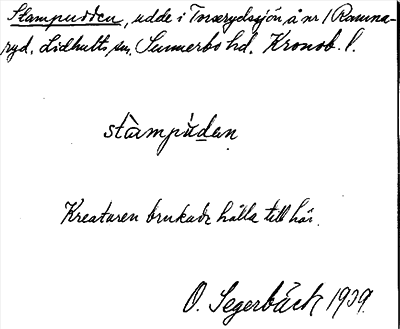 Stampudden, udde i Toraerydssjön å nr 1 Ramna-
ryd. Lidhults sn. Sunnerbo hd. Kronob. l.
stàmpu̍dan
Kreaturen brukade hålla till här.
O. Segerbäck 1939.